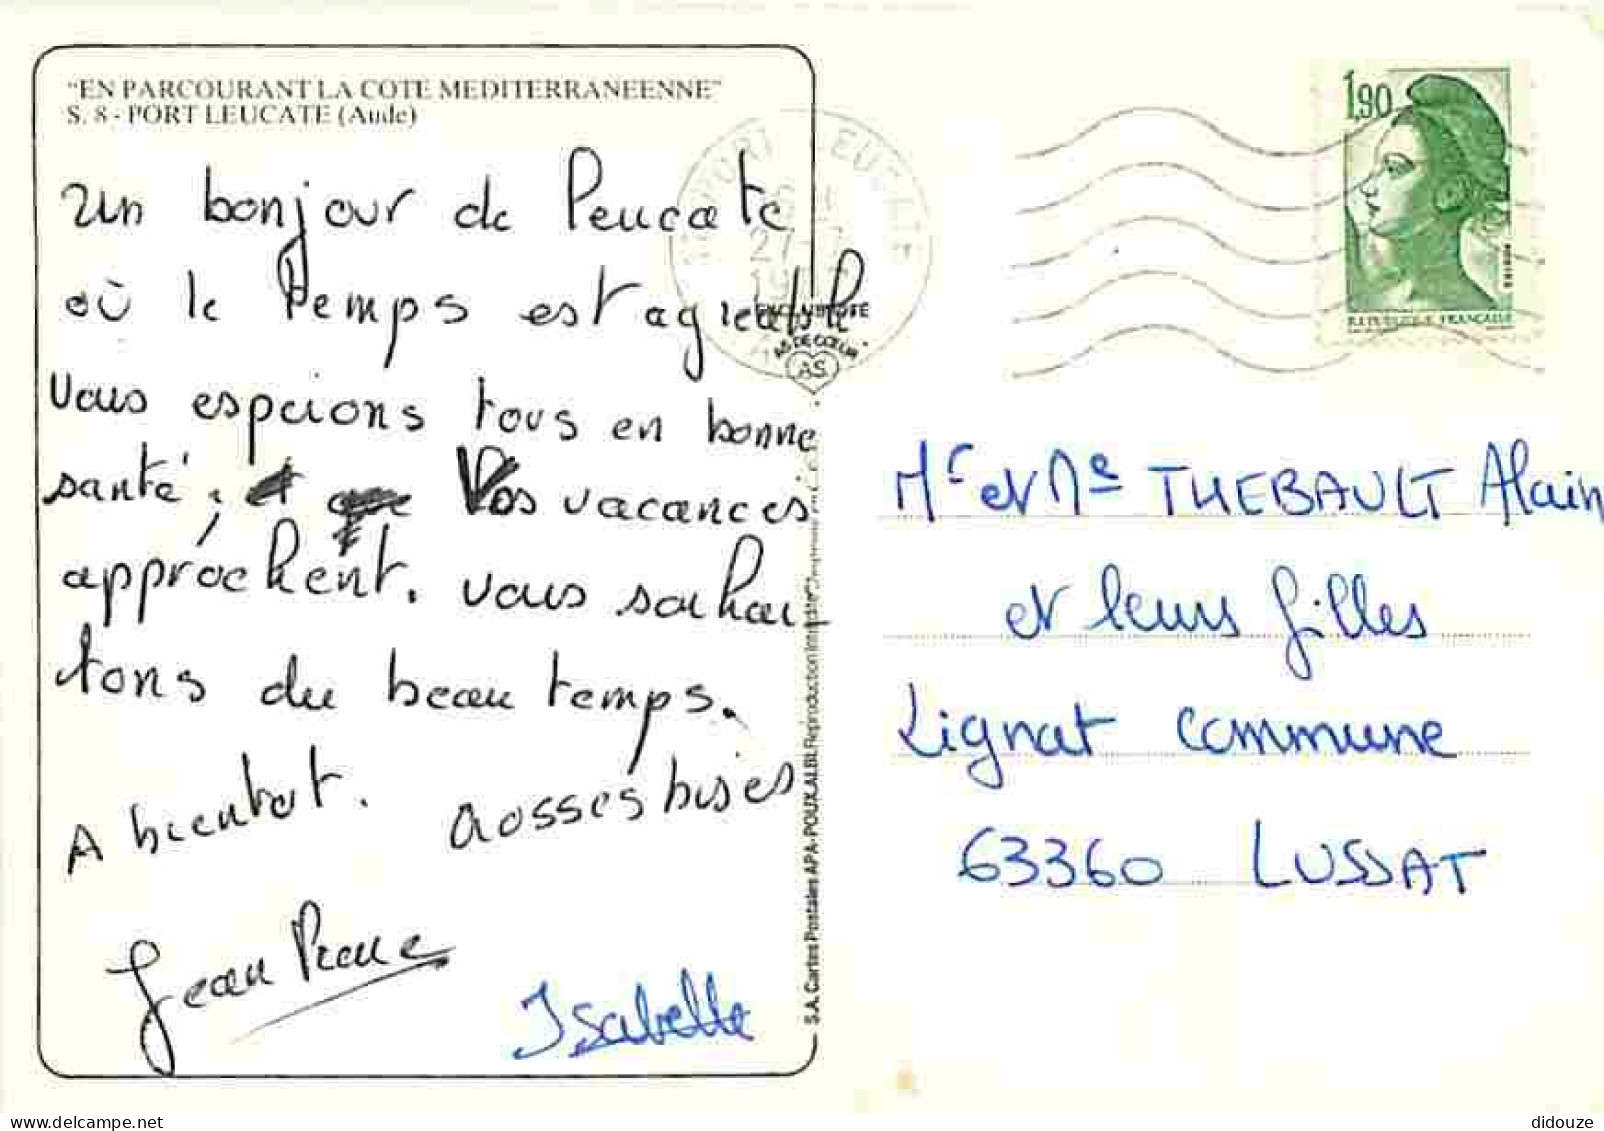 "EN PARCOURANT LA COTE MEDITERRANEENNE"
S. 8 - PORT LEUCATE (Aude)
Un bonjour de Leucate
où le temps est agréable
Vous espérons tous en bonne
santé, Vos vacances
approchent. Vous souhai
tons du beau temps.
A bientot. Grosses bises
Jean Pierre
Isabelle
AS DE CŒUR
AS
S.A. Cartes Postales APA-POUX, ALBI. Reproduction interdite
27-7
1,90
REPUBLIQUE FRANÇAISE
Mr et Me THEBAULT Alain
et leurs filles
Lignat commune
63360 LUSSAT
didouze